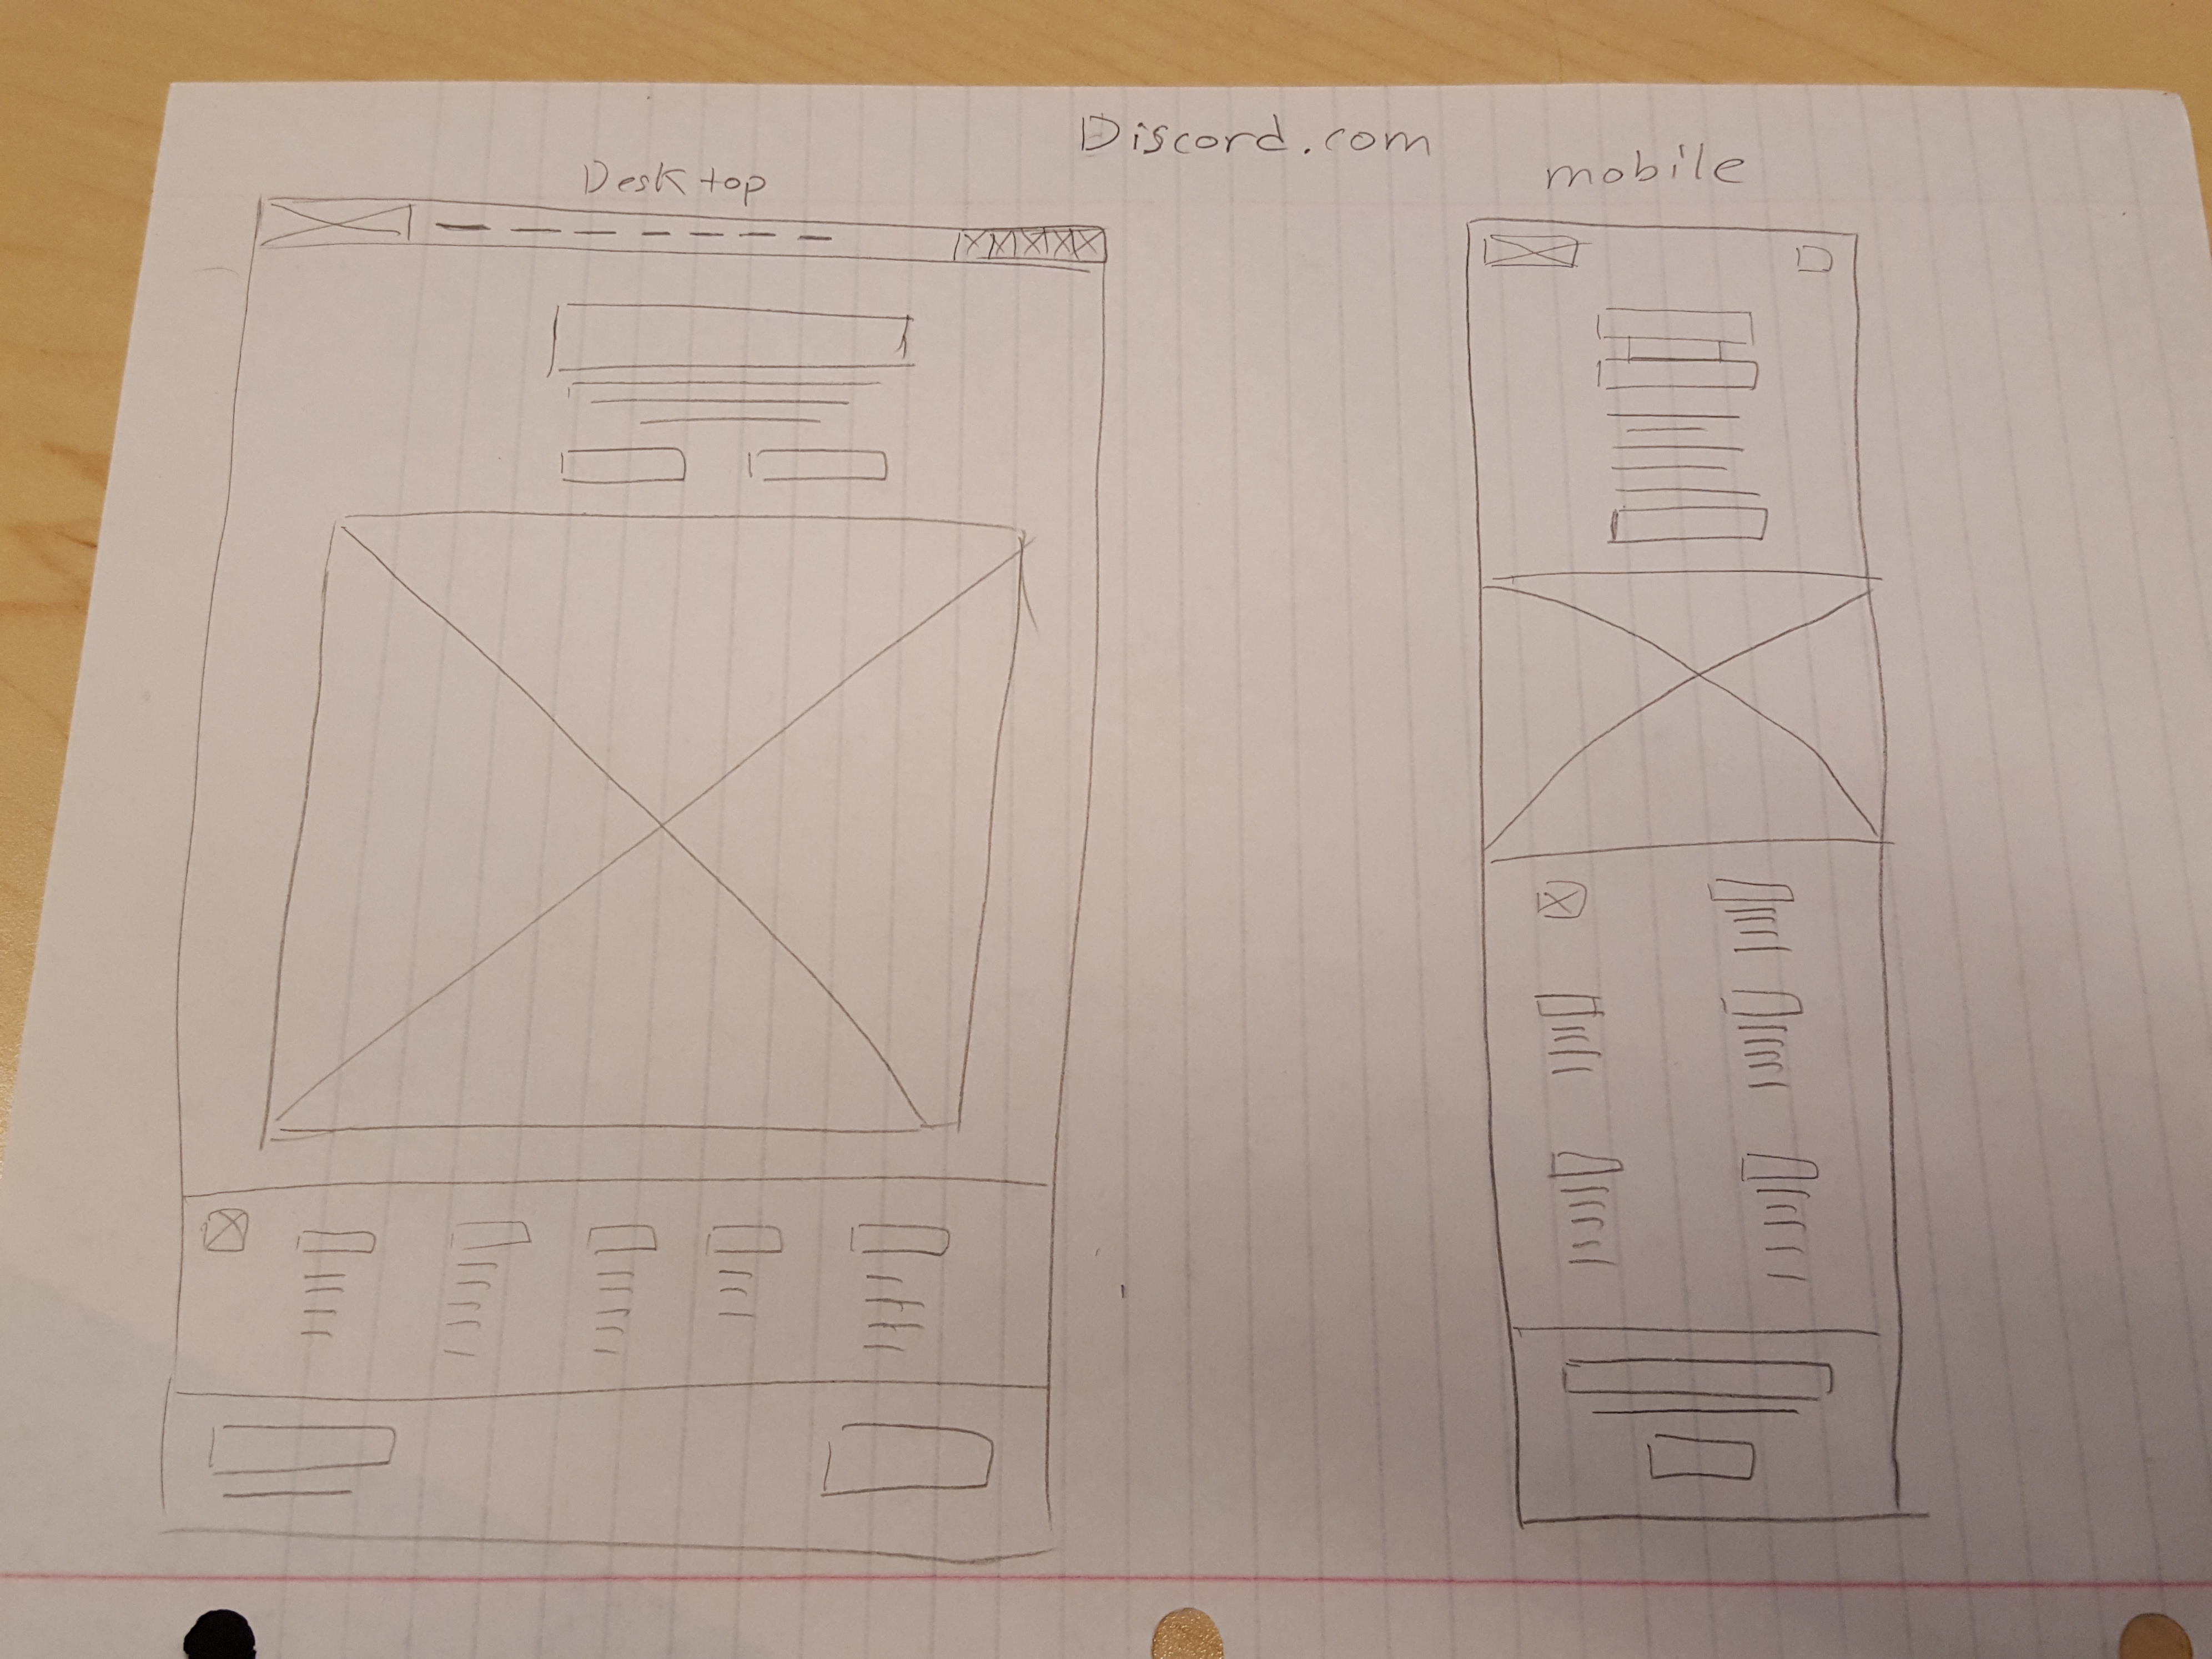 Discord.com
Desktop
mobile